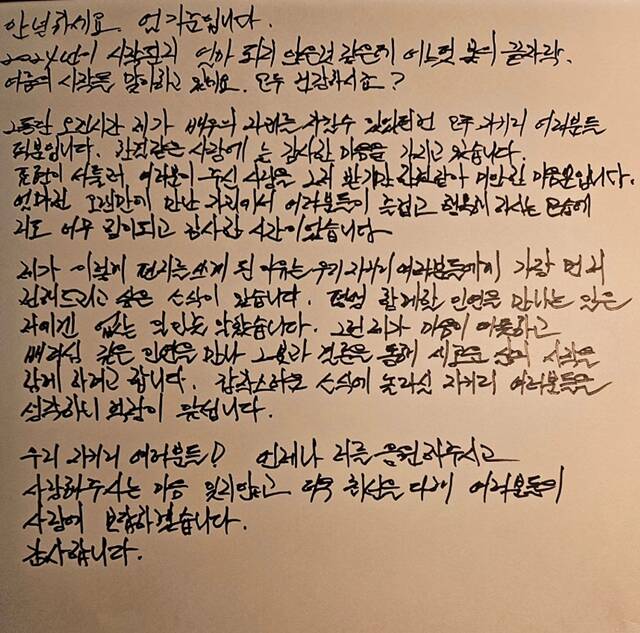 안녕하세요. 엄기준입니다.
2024년이 시작된지 얼마 되지 않은것 같은데 어느덧 봄의 끝자락,
여름의 시작을 맞이하고 있네요. 모두 건강하시죠?
그동안 오랜시간 제가 배우의 자리를 지킬수 있었던건 모두 자기지 여러분들
덕분입니다. 한결같은 사랑에 늘 감사한 마음을 가지고 있습니다.
표현이 서툴러 여러분이 주신 사랑을 그저 받기만 한것같아 미안한 마음뿐입니다.
얼마전 오랜만에 만난 자리에서 여러분들이 즐겁고 행복해 하시는 모습에
저도 너무 힘이되고 감사한 시간이었습니다
제가 이렇게 편지를 쓰게 된 이유는 우리 자기지 여러분들에게 가장 먼저
전해드리고 싶은 소식이 있습니다. 평생 함께할 인연을 만나는 일은
저에겐 없는 일인줄 알았습니다. 그런 제가 마음이 따뜻하고
배려심 깊은 인연을 만나 그분과 결혼을 통해 새로운 삶의 시작을
함께 하려고 합니다. 갑작스러운 소식에 놀라실 자기지 여러분들을
생각하니 떨림이 앞섭니다.
우리 자기지 여러분들! 언제나 저를 응원해주시고
사랑해주시는 마음 잊지않고 더욱 최선을 다해 여러분들의
사랑에 보답하겠습니다.
감사합니다.